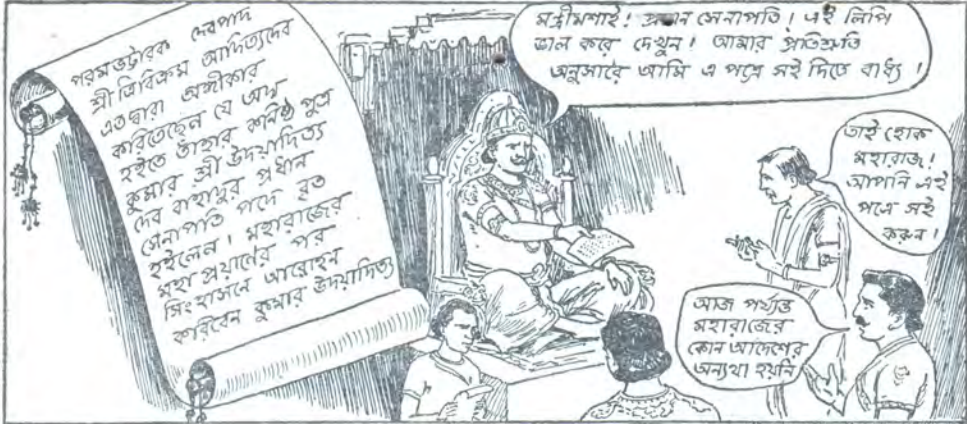 পরমভট্টারক দেবপাদ
শ্রী ত্রিবিক্রম আদিত্যদেব
এতদ্বারা অঙ্গীকার
করিতেছেন যে অদ্য
হইতে তাঁহার কনিষ্ঠ পুত্র
কুমার শ্রী উদয়াদিত্য
দেব বাহাদুর প্রধান
সেনাপতি পদে বৃত
হইলেন। মহারাজের
মহা প্রয়াণের পর
সিংহাসনে আরোহন
করিবেন কুমার উদয়াদিত্য
মন্ত্রীমশাই! প্রধান সেনাপতি! এই লিপি
ভাল করে দেখুন! আমার প্রতিশ্রুতি
অনুসারে আমি এ পত্রে সই দিতে বাধ্য!
তাই হোক
মহারাজ!
আপনি এই
পত্রে সই
করুন!
আজ পর্য্যন্ত
মহারাজের
কোন আদেশের
অন্যথা হয়নি